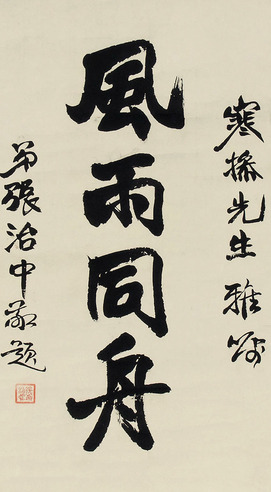 寒操先生雅嘱
風雨同舟
弟張治中敬題